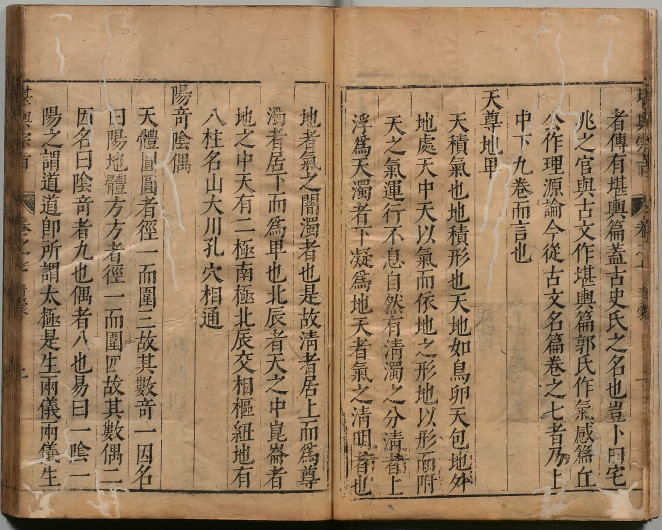 者傳有堪輿篇蓋古史氏之名也豈卜田宅
兆之官與古文作堪輿篇郭氏作氣感篇丘
公作理源論今從古文名篇卷之七者乃上
中下九卷而言也
天尊地卑
天積氣也地積形也天地如鳥卵天包地外
地處天中天以氣而依地之形地以形而附
天之氣運行不息自然有清濁之分清者上
浮為天濁者下凝為地天者氣之清明者也
地者氣之闇濁者也是故清者居上而為尊
濁者居下而為卑也北辰者天之中崑崙者
地之中天有二極南極北辰交相樞紐地有
八柱名山大川孔穴相通
陽奇陰偶
天體圓圓者徑一而圍三故其數奇一因名
曰陽地體方方者徑一而圍四故其數偶二
因名曰陰奇者九也偶者八也易曰一陰一
陽之謂道道卽所謂太極是生兩儀兩儀生
堪輿宗旨
卷之七